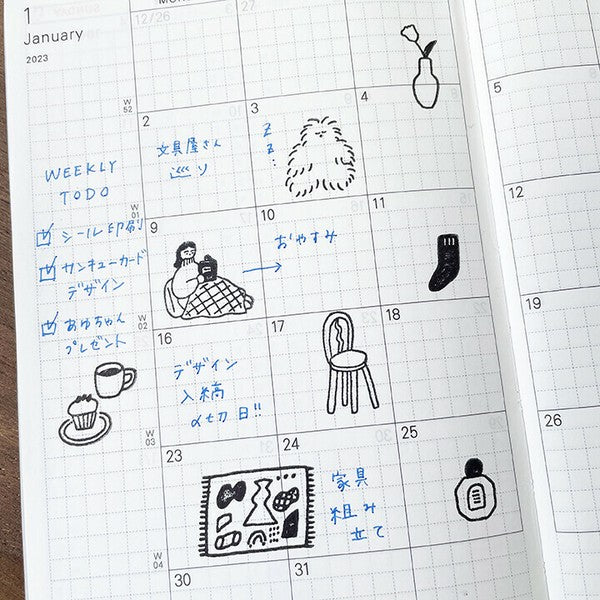 1
January
2023
12/26
27
W
52
2
3
4
5
文具屋さん
巡り
z
z
WEEKLY
TODO
シール印刷
サンキューカード
デザイン
あゆちゃん
プレゼント
W
01
9
10
11
12
おやすみ
W
02
16
17
18
19
デザイン
入稿
〆切日!!
W
03
23
24
25
26
家具
組み
立て
W
04
30
31